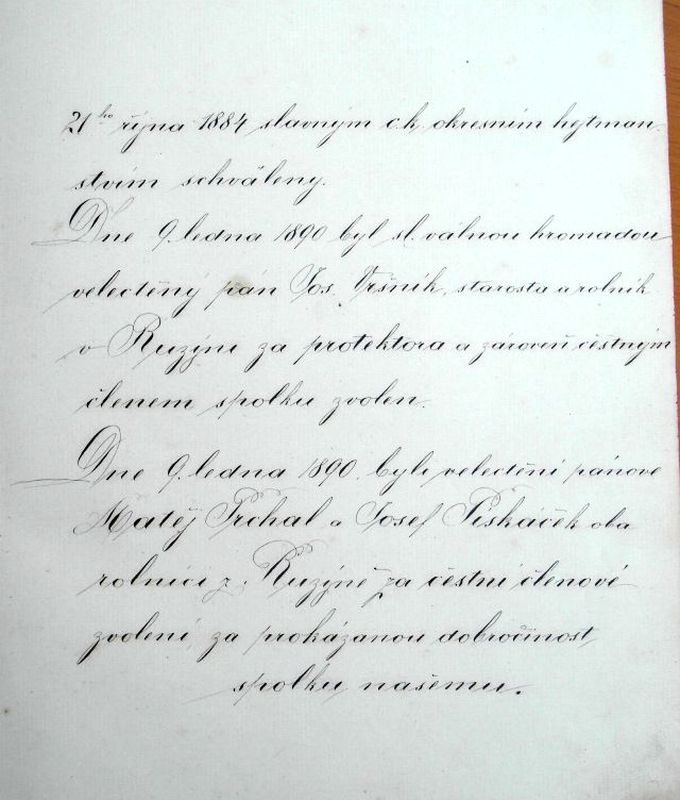 21ho října 1884 slavným c.k. okresním hejtman
stvím schváleny.
Dne 9. ledna 1890 byl sl. válnou hromadou
velectěný pán Jos. Vršník, starosta a rolník
v Ruzýni za protektora a zároveň čestným
členem spolku zvolen.
Dne 9. ledna 1890. byli velectění pánové
Matěj Trchal a Josef Pískáček oba
rolníci z Ruzýně za čestní členové
zvoleni za prokázanou dobročinost,
spolku našemu.